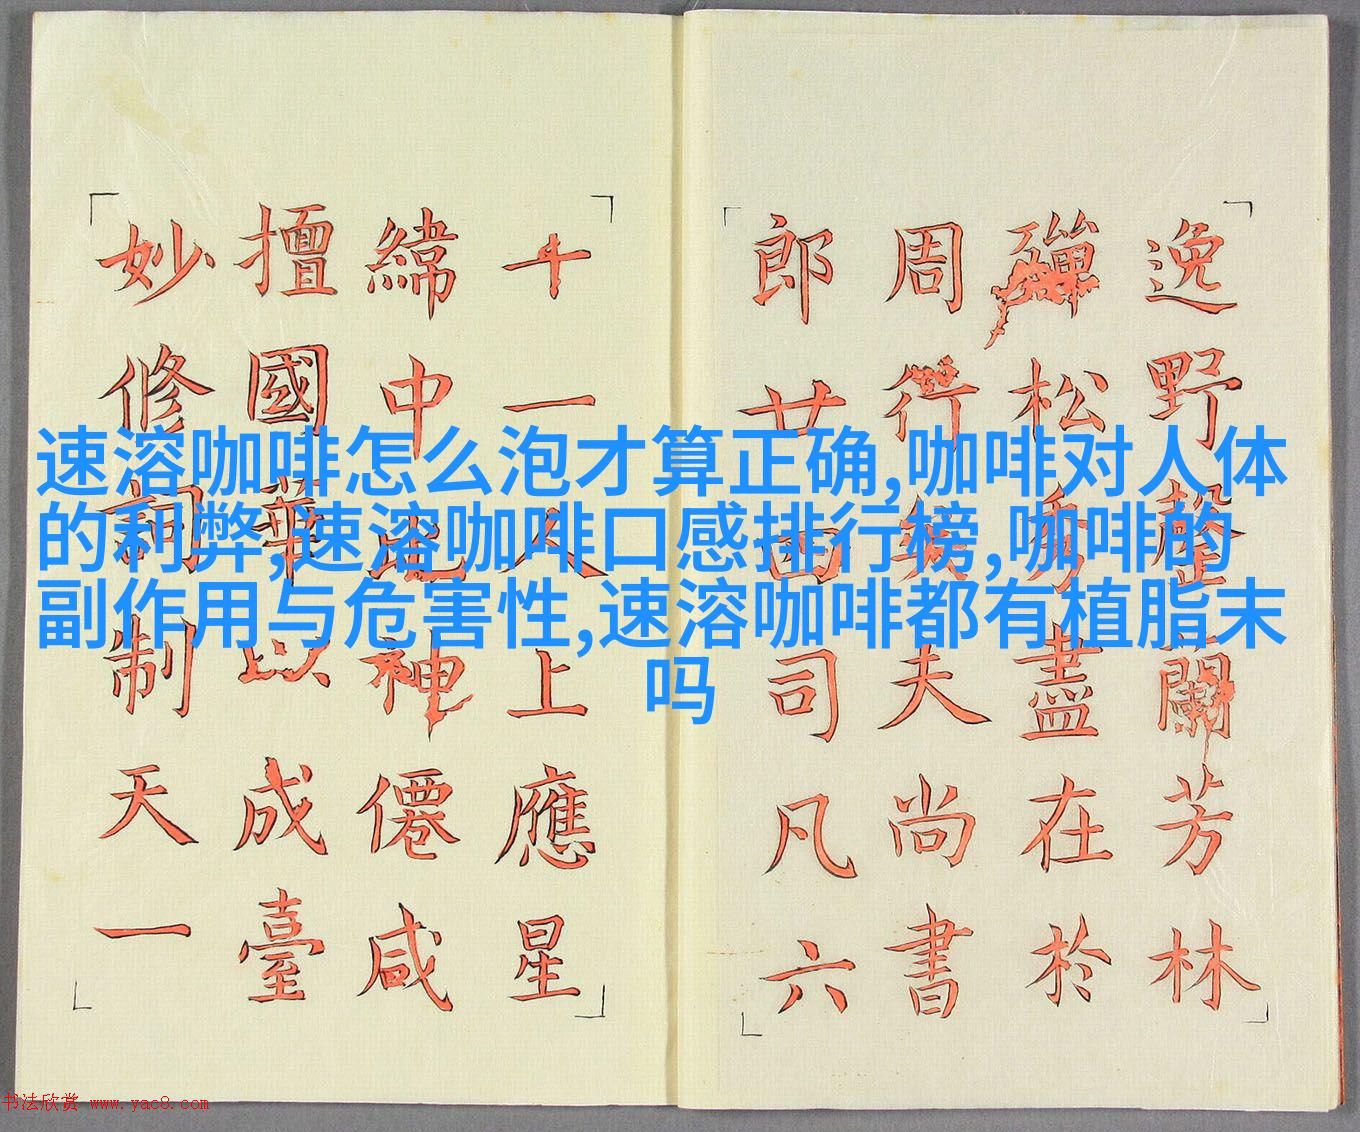 速溶咖啡怎么泡才算正确,咖啡对人体
的利弊,速溶咖啡口感排行榜,咖啡的
副作用与危害性,速溶咖啡都有植脂末
吗
逸野罄蘭芳林
殫松秀盡在於
周行夫尚書
郎廿四司凡六
十一人上應星
緯中神僊咸
擅國華以成臺
妙修詞制天一
书法欣赏 www.yac8.com